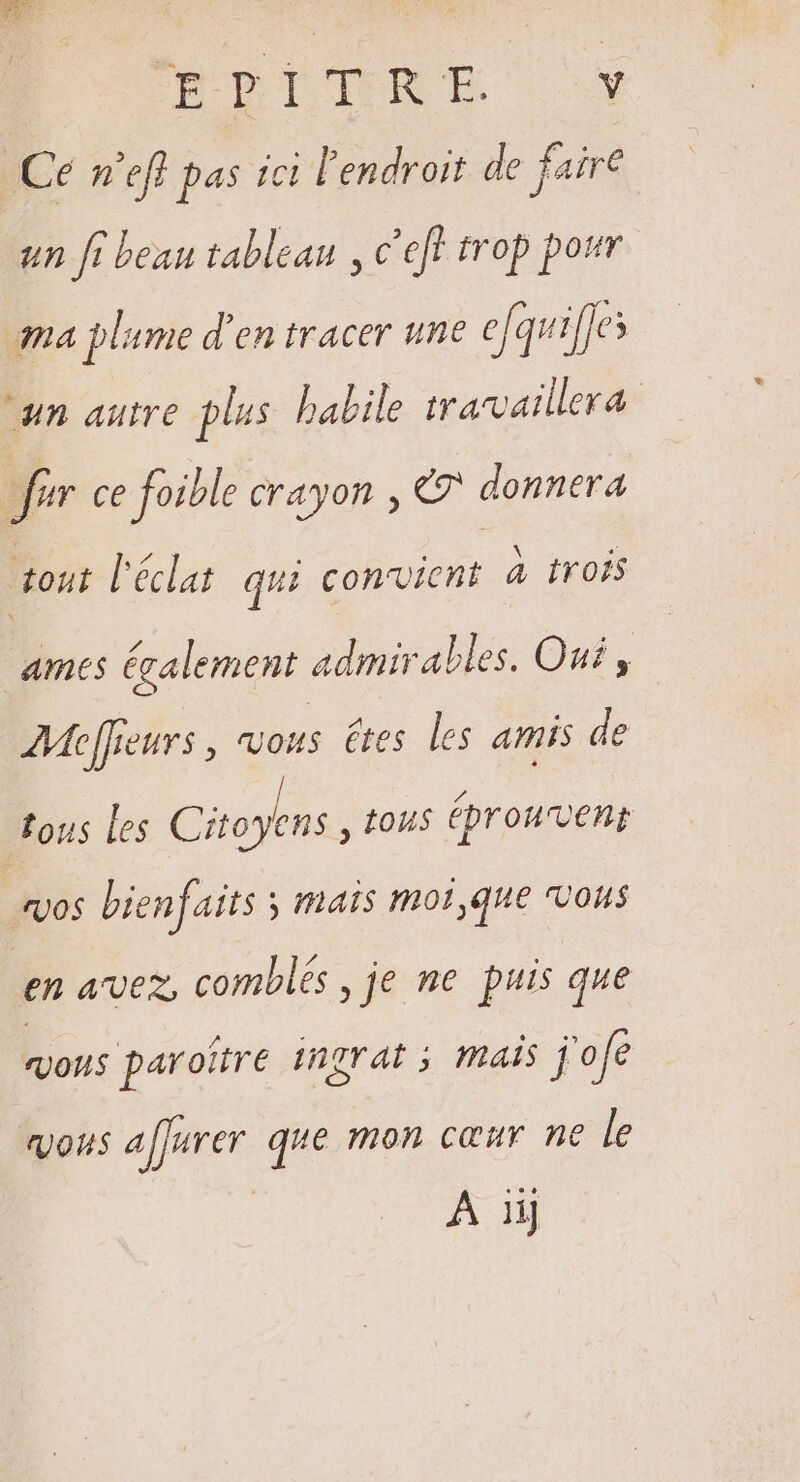 EPITRE. v
Ce n'eſt pas ici l'endroit de faire
un ſi beau tableau, c'eſt trop pour
ma plume d'en tracer une eſquiſſe;
un autre plus habile travaillera
ſur ce foible crayon, & donnera
tout l'éclat qui convient à trois
ames également admirables. Oui,
Meſſieurs, vous êtes les amis de
tous les Citoyens, tous éprouvent
vos bienfaits; mais moi, que vous
en avez comblés, je ne puis que
vous paroître ingrat; mais j'oſe
vous aſſurer que mon cœur ne le
A iij